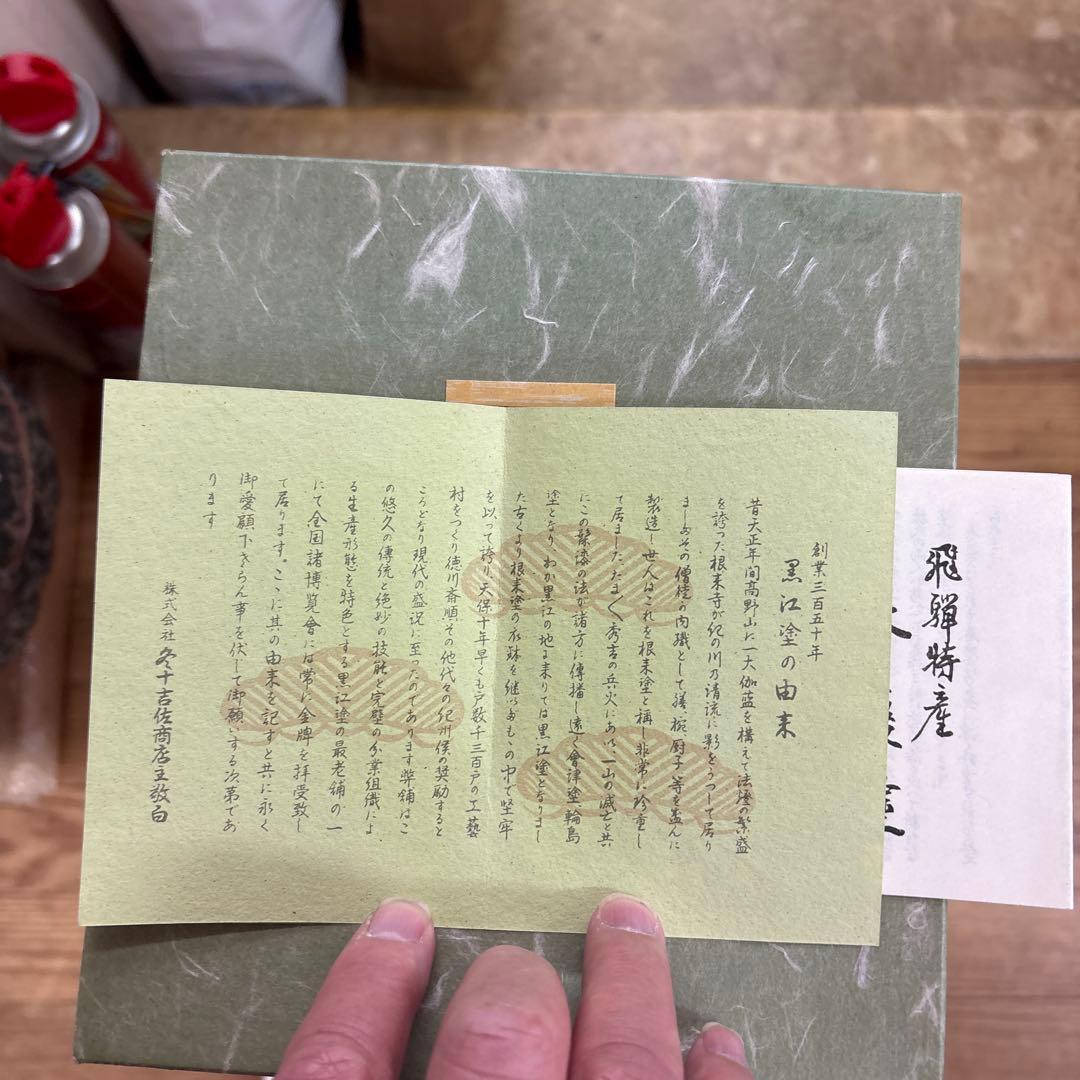 創業三百五十年
黒江塗の由来
昔天正年間高野山に一大伽蓝を構えて法燈の繁盛
を誇った根来寺が紀の川乃清流に影をうつして居り
ましみその僧徒の内職として膳椀厨子等を盛んに
製造し世人はこれを根来塗と稱し非常に珍重し
て居ました、たまく秀吉の兵火にあい一山の滅亡と共
にこの髹漆の法が諸方に傳播し遠く會津塗輪島
塗となり、わが黒江の地に来りては黒江塗となりまし
た古くより根来塗の衣鉢を継いだもの丶中で堅牢
を以って誇り天保十年早くも戸数千三百戸の工藝
村をつくり徳川斉順その他代々の紀州侯の奨励すると
ころとなり現代の盛況に至ったのであります弊舗はこ
の悠久の傳統と絶妙の技能と完璧の分業組織によ
る生産形態を特色とする黒江塗の最老舗の一
にて全国諸博覧會には常に金牌を拝受致し
て居ります。ここに其の由来を記すと共に永く
御愛顧下さらん事を伏して御願いする次第であ
ります
株式会社 冬十吉佐商店主敬白
飛騨特産